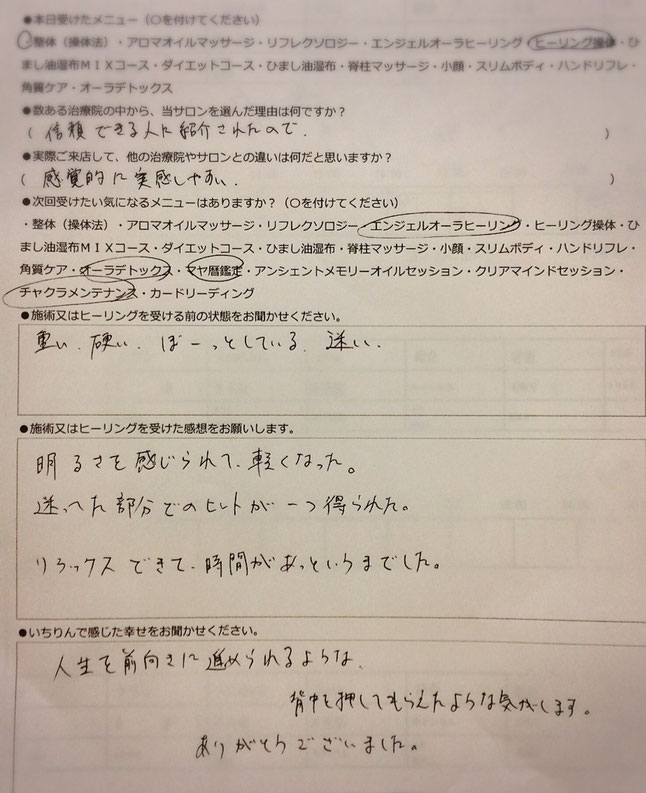 ●本日受けたメニュー（○を付けてください）
・整体（操体法）・アロマオイルマッサージ・リフレクソロジー・エンジェルオーラヒーリング・ヒーリング操体・ひ
まし油湿布ＭＩＸコース・ダイエットコース・ひまし油湿布・脊柱マッサージ・小顔・スリムボディ・ハンドリフレ・
角質ケア・オーラデトックス
●数ある治療院の中から、当サロンを選んだ理由は何ですか？
（ 信頼できる人に紹介されたので. ）
●実際ご来店して、他の治療院やサロンとの違いは何だと思いますか？
（ 感覚的に実感しやすい. ）
●次回受けたい気になるメニューはありますか？（○を付けてください）
・整体（操体法）・アロマオイルマッサージ・リフレクソロジー・エンジェルオーラヒーリング・ヒーリング操体・ひ
まし油湿布ＭＩＸコース・ダイエットコース・ひまし油湿布・脊柱マッサージ・小顔・スリムボディ・ハンドリフレ・
角質ケア・オーラデトックス・マヤ暦鑑定・アンシェントメモリーオイルセッション・クリアマインドセッション・
チャクラメンテナンス・カードリーディング
●施術又はヒーリングを受ける前の状態をお聞かせください。
重い、硬い、ぼーっとしている、迷い.
●施術又はヒーリングを受けた感想をお願いします。
明るさを感じられて、軽くなった。
迷ってた部分でのヒントが一つ得られた。
リラックスできて、時間があっというまでした。
●いちりんで感じた幸せをお聞かせください。
人生を前向きに進められるような、
背中を押してもらえたような気がします。
ありがとうございました。